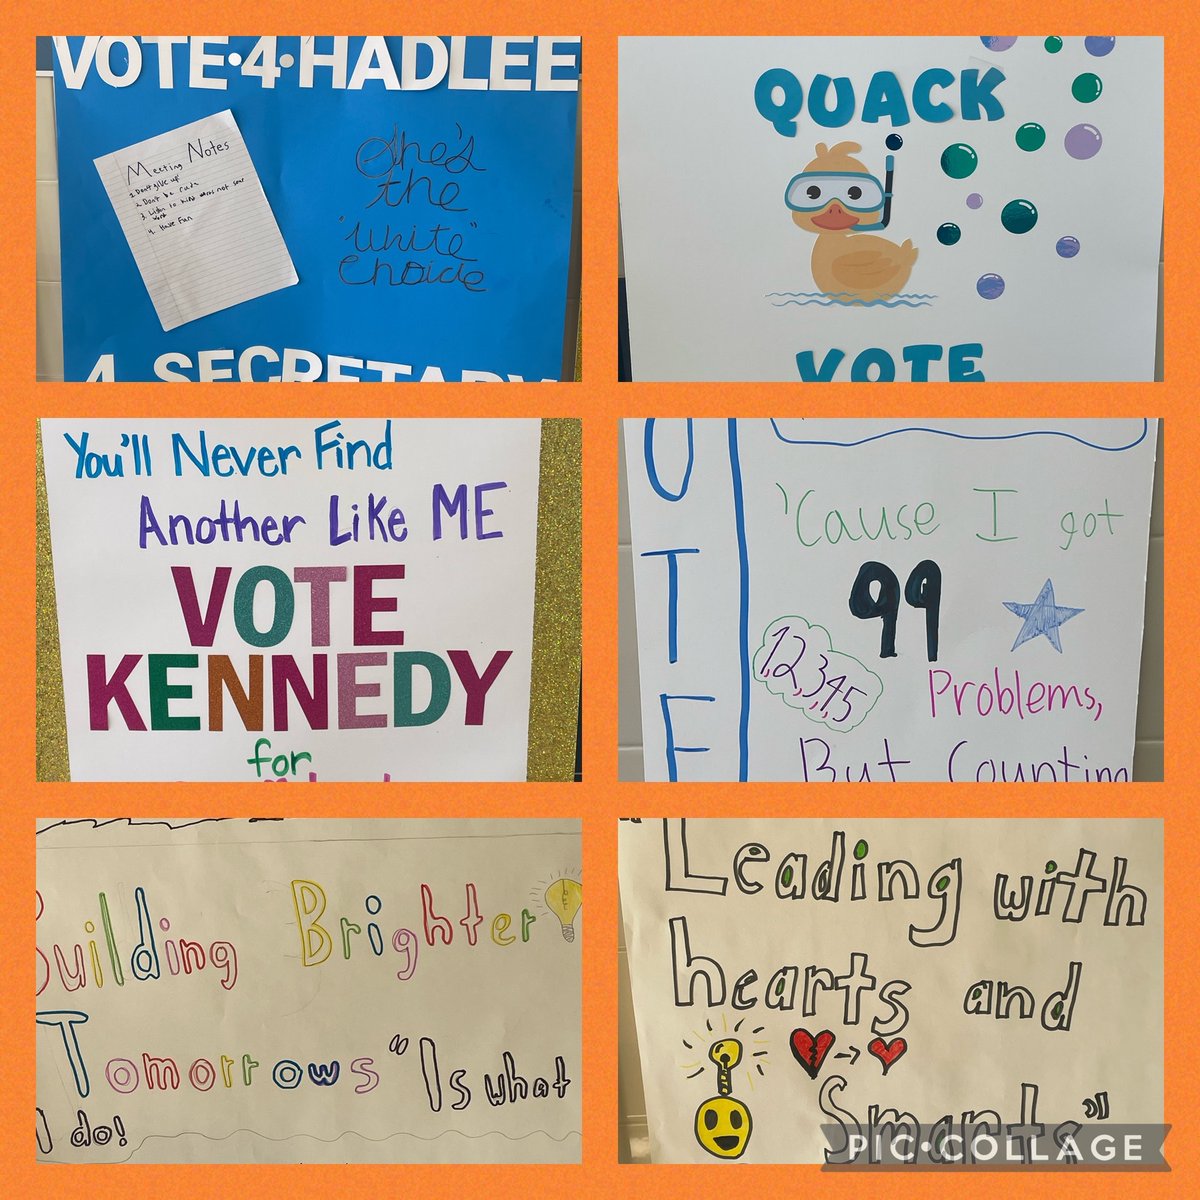 VOTE•4•HADLEE
Meeting Notes
1. Don't give up
2. Don't be rude
3. Listen to
4. Have Fun
She's
the
"White"
Choice
4 SECRETARY
QUACK
VOTE
You'll Never Find
Another Like ME
VOTE
KENNEDY
for
OTE
'Cause I got
99
1,2,3,4,5
Problems,
But Counting
Building Brighter
Tomorrows" Is what
I do!
"Leading with
hearts and
Smarts"
PIC•COLLAGE